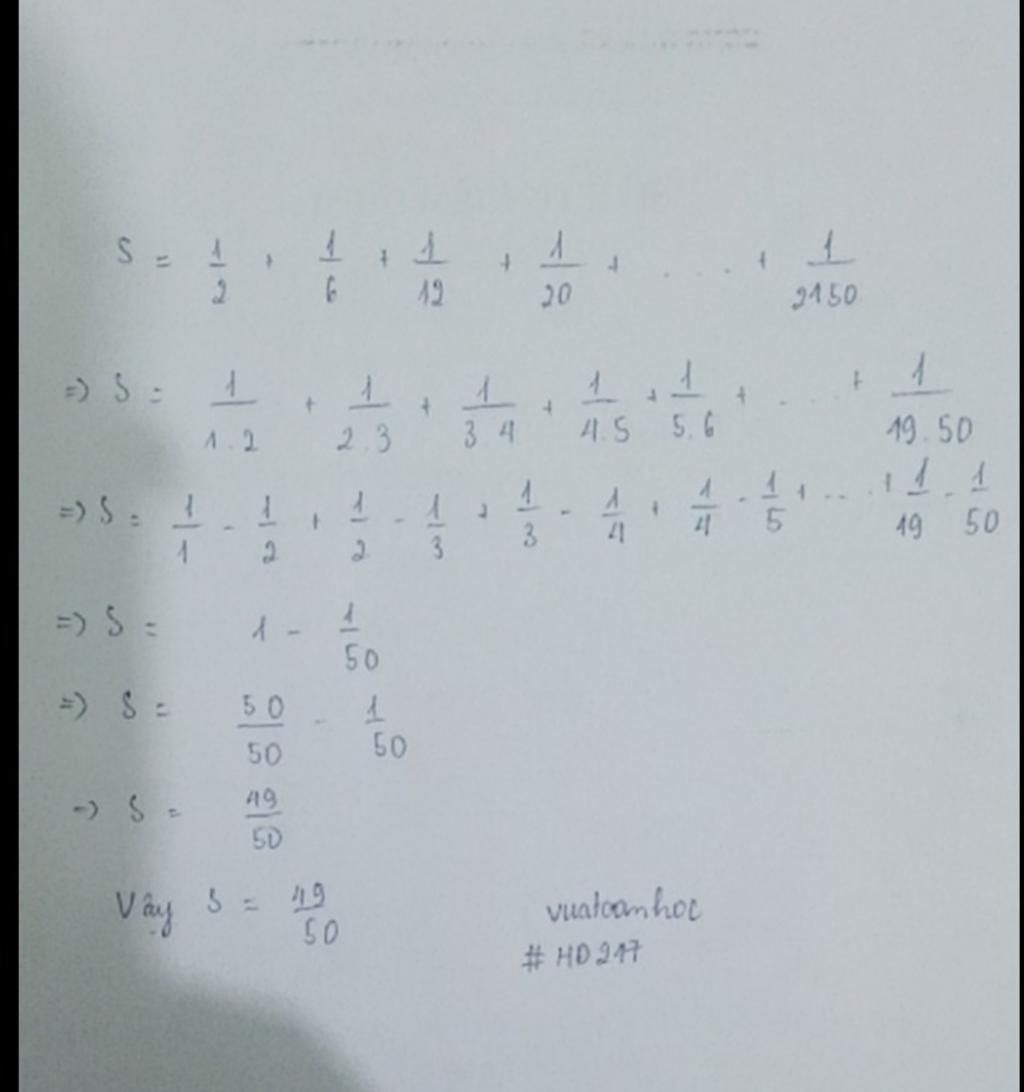 S = 1/2 + 1/6 + 1/12 + 1/20 + .... + 1/2450
=> S = 1/1.2 + 1/2.3 + 1/3.4 + 1/4.5 + 1/5.6 + .... + 1/49.50
=> S = 1/1 - 1/2 + 1/2 - 1/3 + 1/3 - 1/4 + 1/4 - 1/5 + ... + 1/49 - 1/50
=> S = 1 - 1/50
=> S = 50/50 - 1/50
=> S = 49/50
Vậy S = 49/50
vuatoanhoc
# HD247